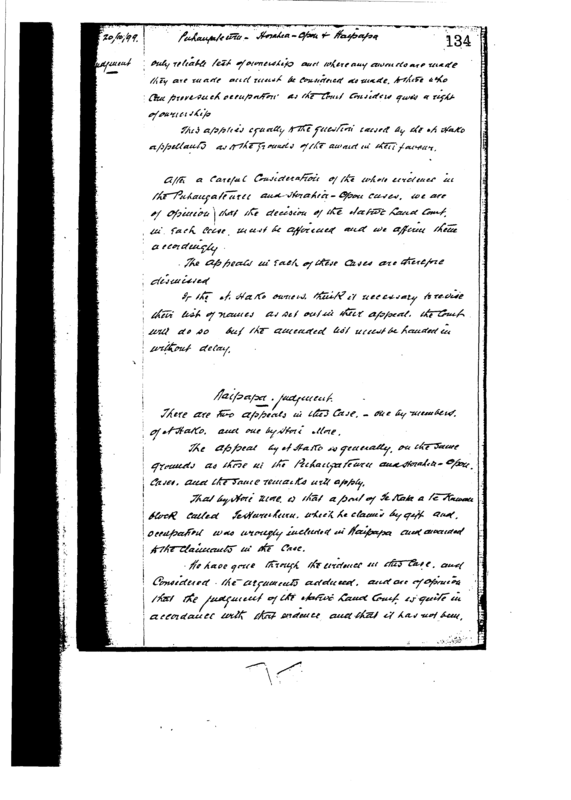 20/10/99. Puhangateuru - Horahia-Opou & Waipapa 134
Judgment only reliable test of ownership and where any awards are made
they are made and must be considered as made, to those who
can prove such occupation as the Court considers gives a right
of ownership
This applies equally to the question raised by the N. Hako
appellants as to the grounds of the award in their favour.
After a Careful Consideration of the whole evidence in
the Puhangateuru and Horahia-Opou cases, we are
of opinion that the decision of the Native Land Court,
in each case, must be affirmed and we affirm them
accordingly.
The appeals in each of these Cases are therefore
dismissed
If the N. Hako owners think it necessary to revise
their list of names as set out in their appeal, the Court
will do so but the amended list must be handed in
without delay.
Waipapa. Judgment.
There are two appeals in this Case, - one by members,
of N. Hako, and one by Hori More.
The appeal by N. Hako is generally, on the same
grounds as those in the Puhangateuru and Horahia-Opou
Cases, and the same remarks will apply.
That by Hori More is that a part of Te
block called which he claims by gift and
occupation was wrongly included in Waipapa and awarded
to the Claimants in the Case.
We have gone through the evidence in this Case, and
Considered the arguments adduced, and are of opinion
that the judgment of the Native Land Court is quite in
accordance with that evidence and that it has not been,